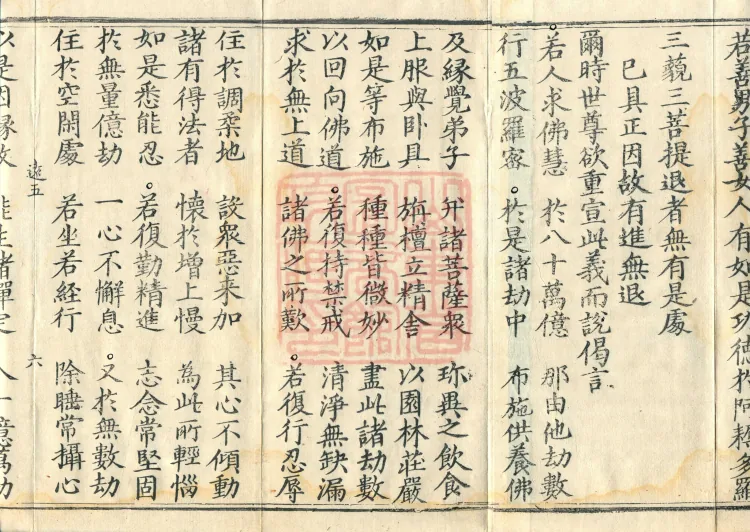 若善男子善女人有如是功德於阿耨多羅
三藐三菩提退者無有是處
已具正因故有進無退
爾時世尊欲重宣此義而說偈言
若人求佛慧 於八十萬億 那由他劫數
行五波羅蜜 於是諸劫中 布施供養佛
及緣覺弟子 幷諸菩薩眾 珎異之飲食
上服與臥具 旃檀立精舍 以園林莊嚴
如是等布施 種種皆微妙 盡此諸劫數
以回向佛道 若復持禁戒 清淨無缺漏
求於無上道 諸佛之所歎 若復行忍辱
住於調柔地 設眾惡來加 其心不傾動
諸有得法者 懷於增上慢 為此所輕惱
如是悉能忍 若復勤精進 志念常堅固
於無量億劫 一心不懈息 又於無數劫
住於空閑處 若坐若經行 除睡常攝心
五 六
以是因緣故 能生諸禪定 八十億萬劫